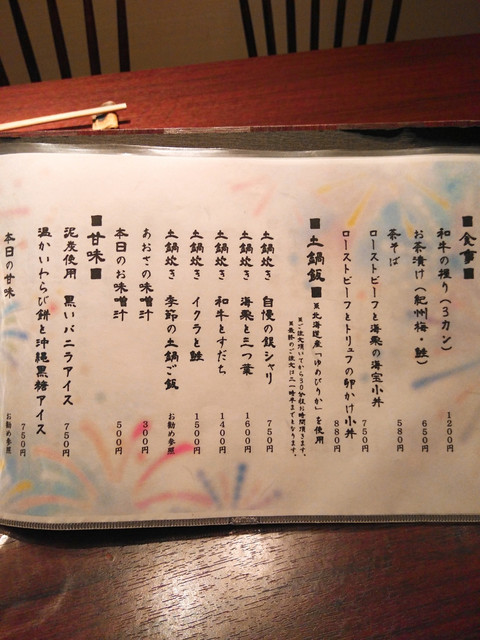 ■食事■
和牛の握り(3カン) 1200円
お茶漬け(紀州梅・鮭) 650円
茶そば 580円
ローストビーフと の海宝小丼 750円
ローストビーフとトリュフの卵かけ小丼 880円
■土鍋飯■ ※北海道産「ゆめぴりか」を使用
※ご注文頂いてから30分程お時間頂きます。
※最終のご注文は二一時半までとなります。
土鍋炊き 自慢の銀シャリ 750円
土鍋炊き と三つ葉 1600円
土鍋炊き 和牛とすだち 1400円
土鍋炊き イクラと鮭 1500円
土鍋炊き 季節の土鍋ご飯 お勧め参照
あおさの味噌汁 300円
本日のお味噌汁 500円
■甘味■
泥炭使用 黒いバニラアイス 750円
温かいわらび餅と沖縄黒糖アイス 750円
本日の甘味 お勧め参照